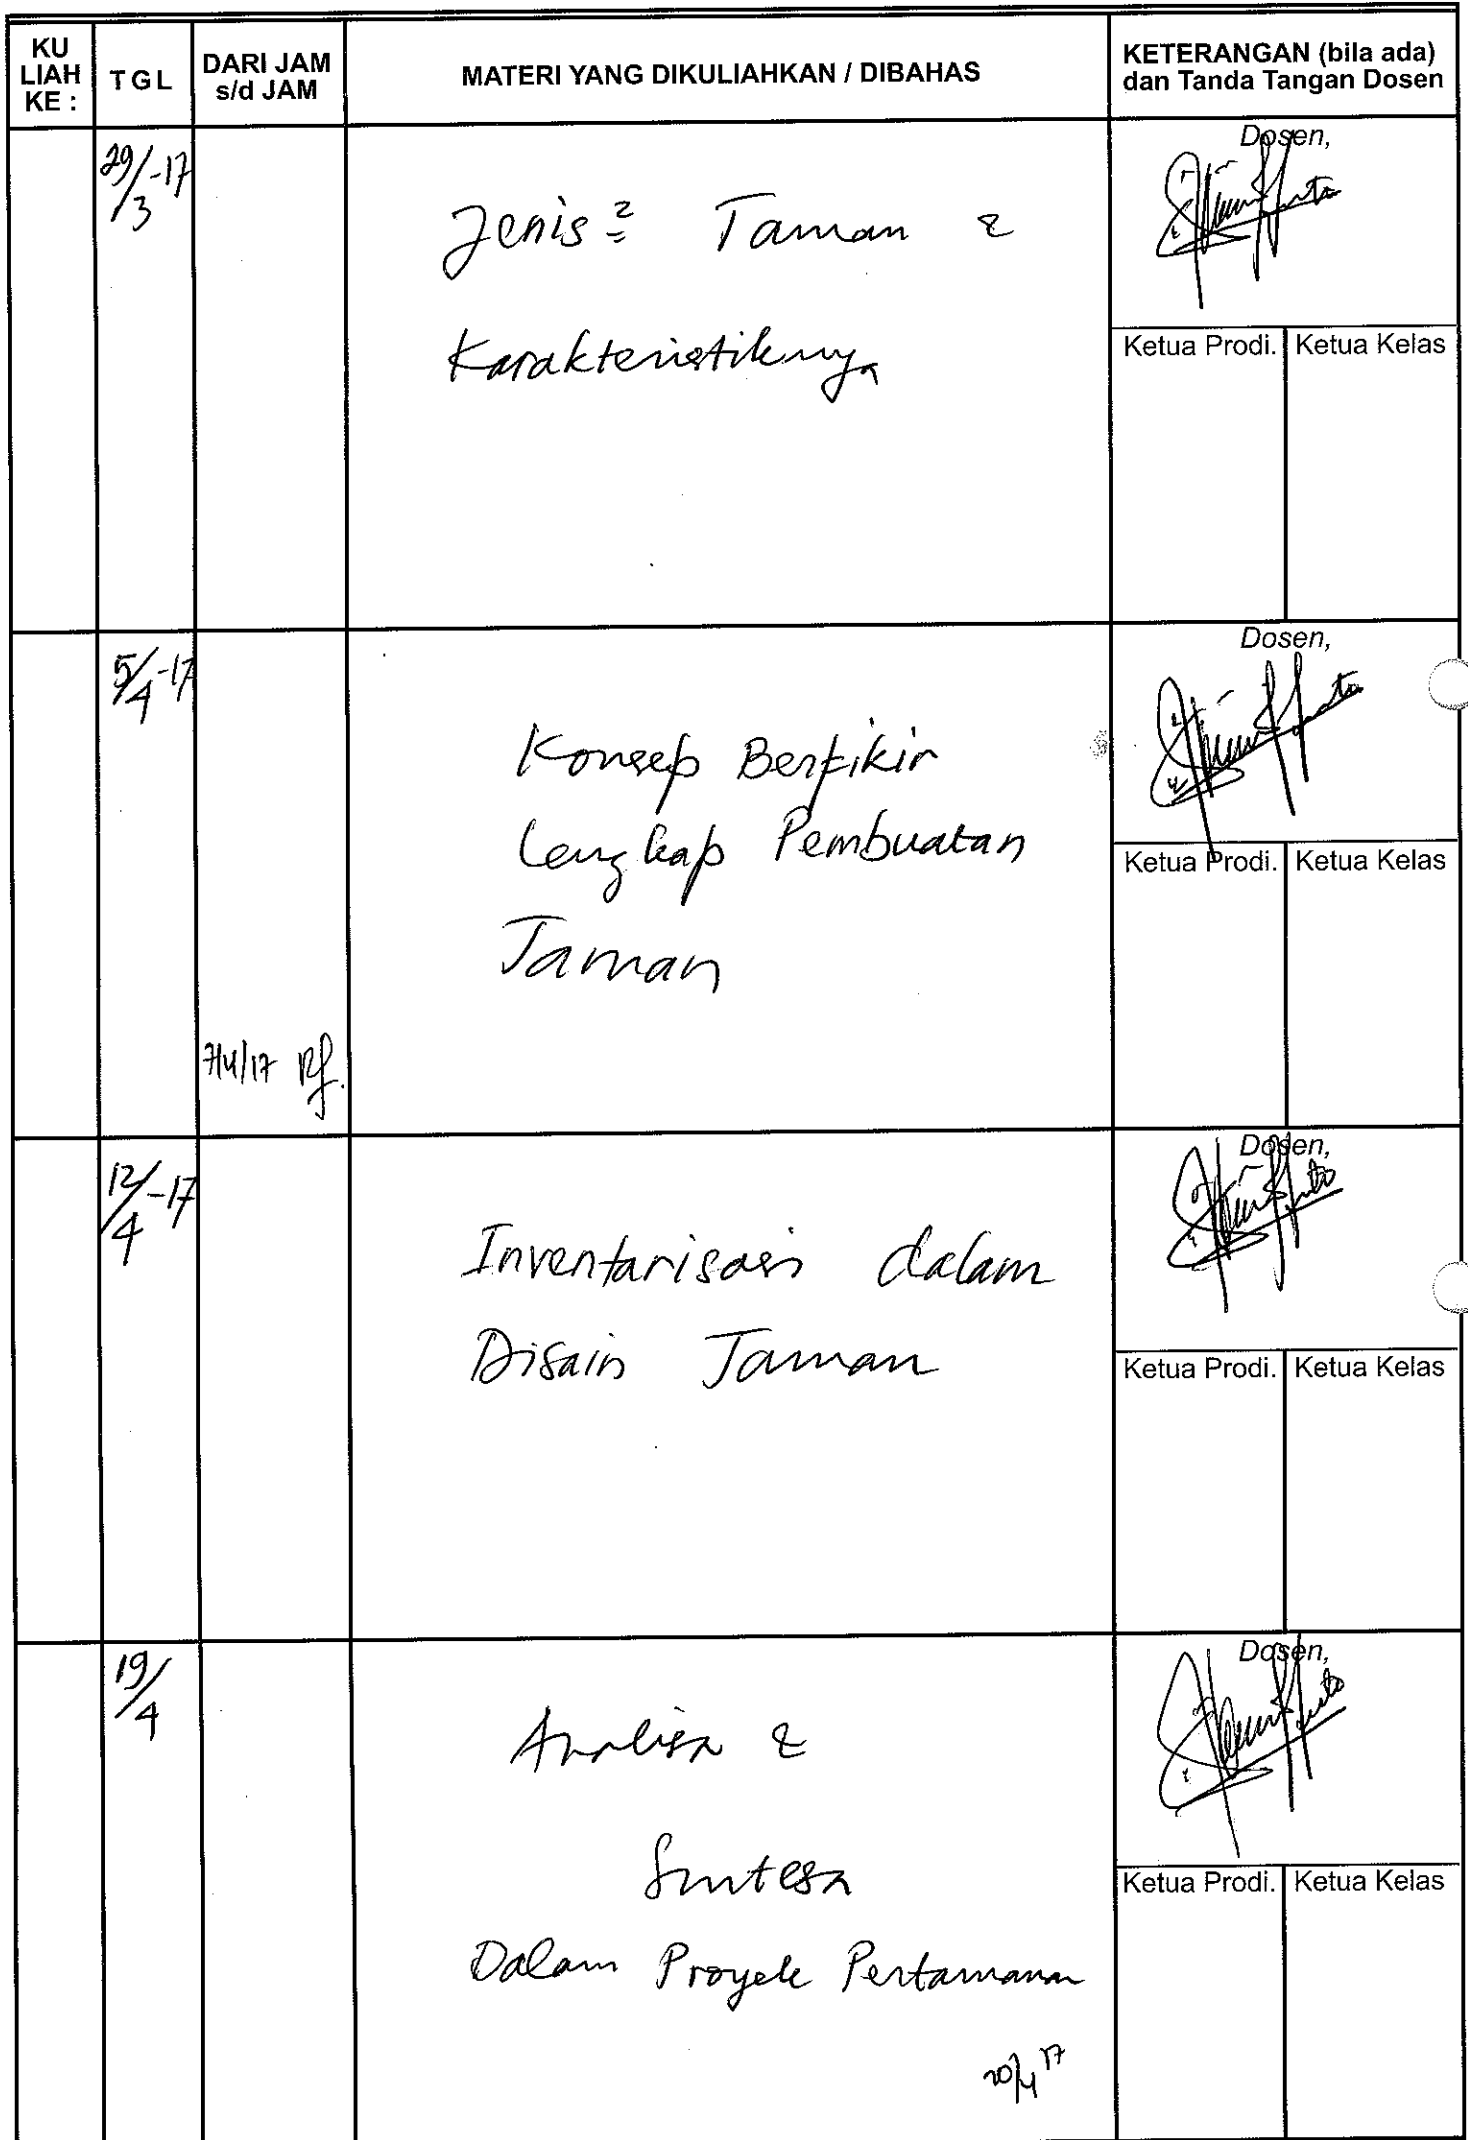 KU LIAH KE :
TGL
DARI JAM s/d JAM
MATERI YANG DIKULIAHKAN / DIBAHAS
KETERANGAN (bila ada) dan Tanda Tangan Dosen
29/3-17
Jenis² Taman &
Karakteristiknya
Dosen,
Ketua Prodi. Ketua Kelas
5/4-17
Konsep Berfikir
Lengkap Pembuatan
Taman
7/4/17
Dosen,
Ketua Prodi. Ketua Kelas
12/4-17
Inventarisasi dalam
Disain Taman
Dosen,
Ketua Prodi. Ketua Kelas
19/4
Analisa &
Sintesa
Dalam Proyek Pertamanan
20/4 17
Dosen,
Ketua Prodi. Ketua Kelas